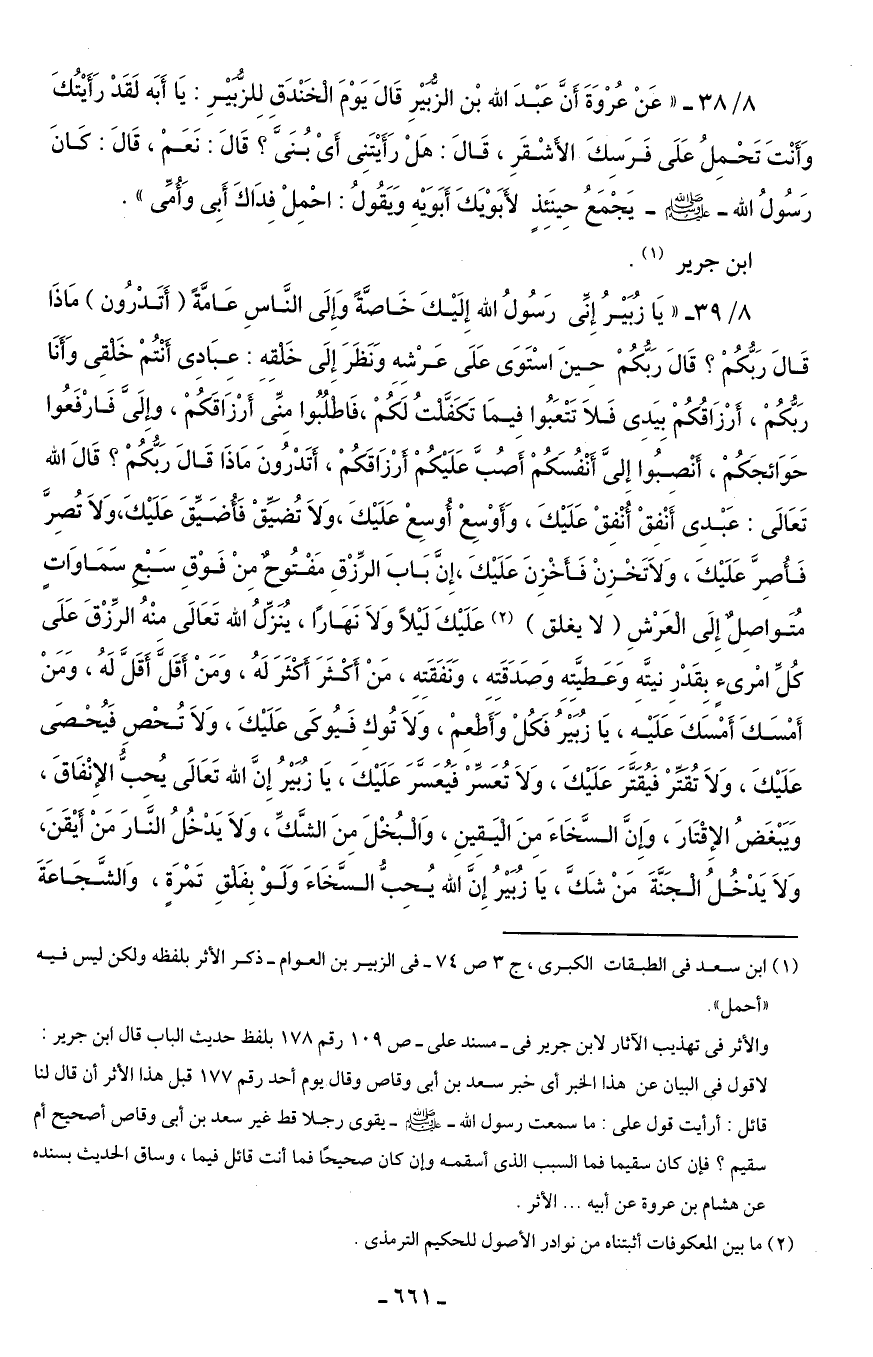 ٨/ ٣٨ ـ « عَنْ عُرْوَةَ أَنَّ عَبْدَ الله بْنِ الزُّبَيْرِ قَالَ يَوْمَ الْخَنْدَقِ لِلزُّبَيْـرِ : يَا أَبَه لَقَدْ رَأَيْتُكَ
وَأَنْتَ تَحْـمِلُ عَلَى فَـرَسِكَ الأَشْـقَرِ ، قَـالَ : هَلْ رَأَيْتَنِى أَىْ بُـنَىَّ ؟ قَالَ : نَعَـمْ ، قَالَ : كَـانَ
رَسُولُ الله ـ ﷺ ـ يَجْمَعُ حِينَئِذٍ لأَبَوْيكَ أَبَوَيْهِ وَيَقُولُ : احْمِلْ فِدَاكَ أَبِى وَأُمِّى » .
ابن جرير (١) .
٨/ ٣٩ـ « يَا زُبَيْـرُ إِنِّى رَسُولُ الله إِلَيْـكَ خَـاصَّةً وَإِلَى النَّـاسِ عَـامَّةً ( أَتَـدْرُون ) مَاذَا
قَـالَ رَبُّكُمْ ؟ قَالَ رَبُّكُمْ حِـينَ اسْتَوَى عَلَى عَـرْشِه وَنَظَرَ إِلَى خَلْقِهِ : عِـبَادِى أَنْتُم خَلْقِى وَأَنَا
رَبُّكُمْ ، أَرْزَاقُكُمْ بِيَدِى فَـلاَ تَتْعَبُوا فِيمَا تَكَفَّلْتُ لَكُمْ ،فَاطْلُبُوا مِنِّى أَرْزَاقَكُمْ ، وإِلَىَّ فَـارْفَعُوا
حَوَائِجَكُمْ ، أَنْصِـبُوا إِلَىَّ أَنْفُسَكُمْ أَصُبَّ عَلَيْكُمْ أَرْزَاقَكُمْ ، أَتَدْرُونَ مَاذَا قَـالَ رَبُّكُمْ ؟ قَالَ الله
تَعَالَى : عَبْـدِى أَنْفِقْ أُنْفِقْ عَلَيْكَ ، وَأَوْسِعْ أُوسِعْ عَلَيْكَ ،وَلاَ تُضَيِّقْ فَأُضَـيِّقَ عَلَيْكَ،وَلاَ تُصِرَّ
فَـأُصِرَّ عَلَيْكَ ، وَلاَتَخْـزِنْ فَـأَخْزِنَ عَلَيْكَ ،إِنَّ بَابَ الرِّزْقِ مَفْتُوحٌ مِنْ فَـوْقِ سَبْعِ سَمَـاوَاتٍ
مُتَـواصِلٌ إِلَى الْعَرْشِ ( لا يغلق ) (٢) عَلَيْكَ لَيْلاً وَلاَ نَهَـارًا ، يُنَزِّلُ الله تَعَالَى مِنْهُ الرِّزْقَ عَلَى
كُلِّ امْرِىءٍ بِقَدْرِ نِيتَّه وَعَـطيَّتِه وَصَدَقَتِه ، ونَفَقَتِه ، مَنْ أَكْـثَرَ أَكْثَرَ لَهُ ، وَمَنْ أَقَلَّ أَقَلَّ لَهُ ، وَمَنْ
أَمْـسَكَ أَمْسَكَ عَلَيْـهِ ، يَا زُبَيْرُ فَكُلْ وَأَطْعِمْ ، وَلاَ تُوكِ فَـيُوكَى عَلَيْكَ ، وَلاَ تُـحْصِ فَيُحْـصَى
عَلَيْكَ ، وَلاَ تُقَتِّرْ فَيُقَتَّرَ عَلَيْكَ ، وَلاَ تُعَسِّرْ فَيُعَسَّرَ عَلَيْكَ ، يَا زُبَيْرُ إِنَّ الله تَعَالَى يُحِبُّ الإِنْفَاقَ ،
وَيَبْغَضُ الإِقْتَارَ ، وَإِنَّ السَّخَاءَ مِنَ الْيَـقِينِ ، وَالْـبُخْلَ مِنَ الشَّكِّ ، وَلاَ يَدْخُلُ النَّـارَ مَنْ أَيْقَنَ،
وَلاَ يَدْخُـلُ الْـجَنَّةَ مَنْ شَكَّ ، يَا زُبَيْرُ إِنَّ الله يُـحِبُّ السَّخَاءَ وَلَـوْ بِفَلْقِ تَمْرَةٍ ، وَالشَّـجَاعَةَ
(١) ابن سـعـد فى الطبـقات الكبرى ، ج ٣ ص ٧٤ ـ فى الزبيـر بن العوام ـ ذكـر الأثر بلفظه ولكن ليس فـيـه
«أحمل».
والأثر فى تهذيب الآثار لابن جرير فى ـ مسند على ـ ص ١٠٩ رقم ١٧٨ بلفظ حديث الباب قال ابن جرير :
لاقول فى البيان عن هذا الخبر أى خبر سعد بن أبى وقاص وقال يوم أحد رقم ١٧٧ قبل هذا الأثر أن قال لنا
قائل : أرأيت قول على : ما سمعت رسول الله ـ ﷺ ـ يقوى رجـلا قط غير سعد بن أبى وقاص أصحيح أم
سقيم ؟ فإن كان سقيما فما السبب الذى أسقمـه وإن كان صحيحًا فما أنت قائل فيما ، وساق الحديث بسنده
عن هشام بن عروة عن أبيه ... الأثر .
(٢) ما بين المعكوفات أثبتناه من نوادر الأصول للحكيم الترمذى .
ـ ٦٦١ ـ